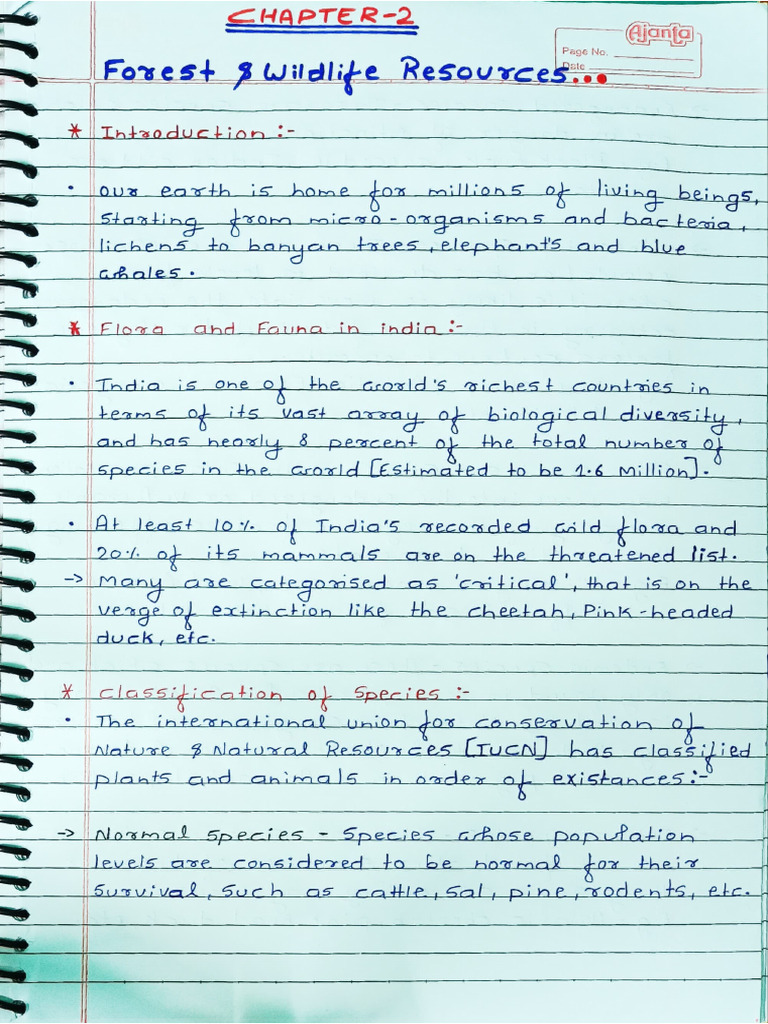 CHAPTER-2
Ajanta
Page No.
Date
Forest & Wildlife Resources...
* Introduction :-
• Our earth is home for millions of living beings,
starting from micro-organisms and bacteria,
lichens to banyan trees, elephants and blue
whales.
* Flora and Fauna in india :-
• India is one of the world's richest countries in
terms of its vast array of biological diversity,
and has nearly 8 percent of the total number of
species in the world [Estimated to be 1.6 Million].
• At least 10% of India's recorded wild flora and
20% of its mammals are on the threatened list.
-> Many are categorised as 'critical', that is on the
verge of extinction like the cheetah, Pink-headed
duck, etc.
* Classification of Species :-
• The international union for conservation of
Nature & Natural Resources [IUCN] has classified
plants and animals in order of existances:-
-> Normal Species - Species whose population
levels are considered to be normal for their
Survival, Such as cattle, Sal, pine, rodents, etc.